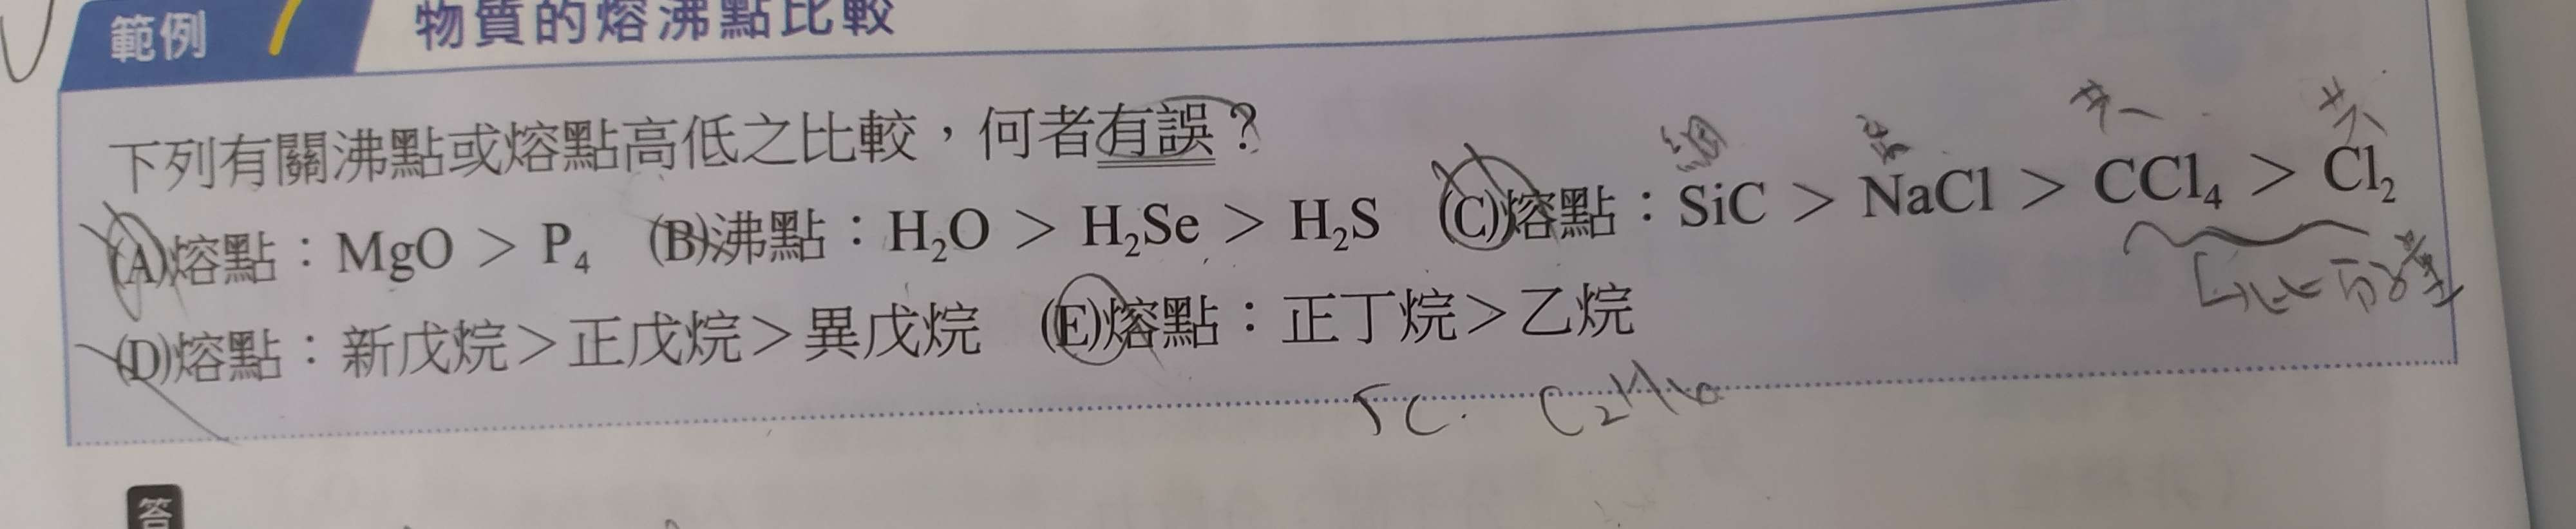 範例 7 物質的熔沸點比較
下列有關沸點或熔點高低之比較，何者有誤？
(A)熔點：MgO > P₄ (B)沸點：H₂O > H₂Se > H₂S (C)熔點：SiC > NaCl > CCl₄ > Cl₂
(D)熔點：新戊烷 > 正戊烷 > 異戊烷 (E)熔點：正丁烷 > 乙烷
答